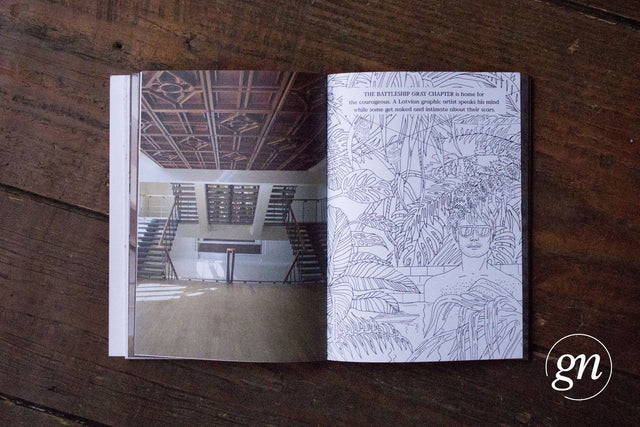 THE BATTLESHIP GRAY CHAPTER is home for
the courageous. A Latvian graphic artist speaks his mind
while some get naked and intimate about their scars.
gn